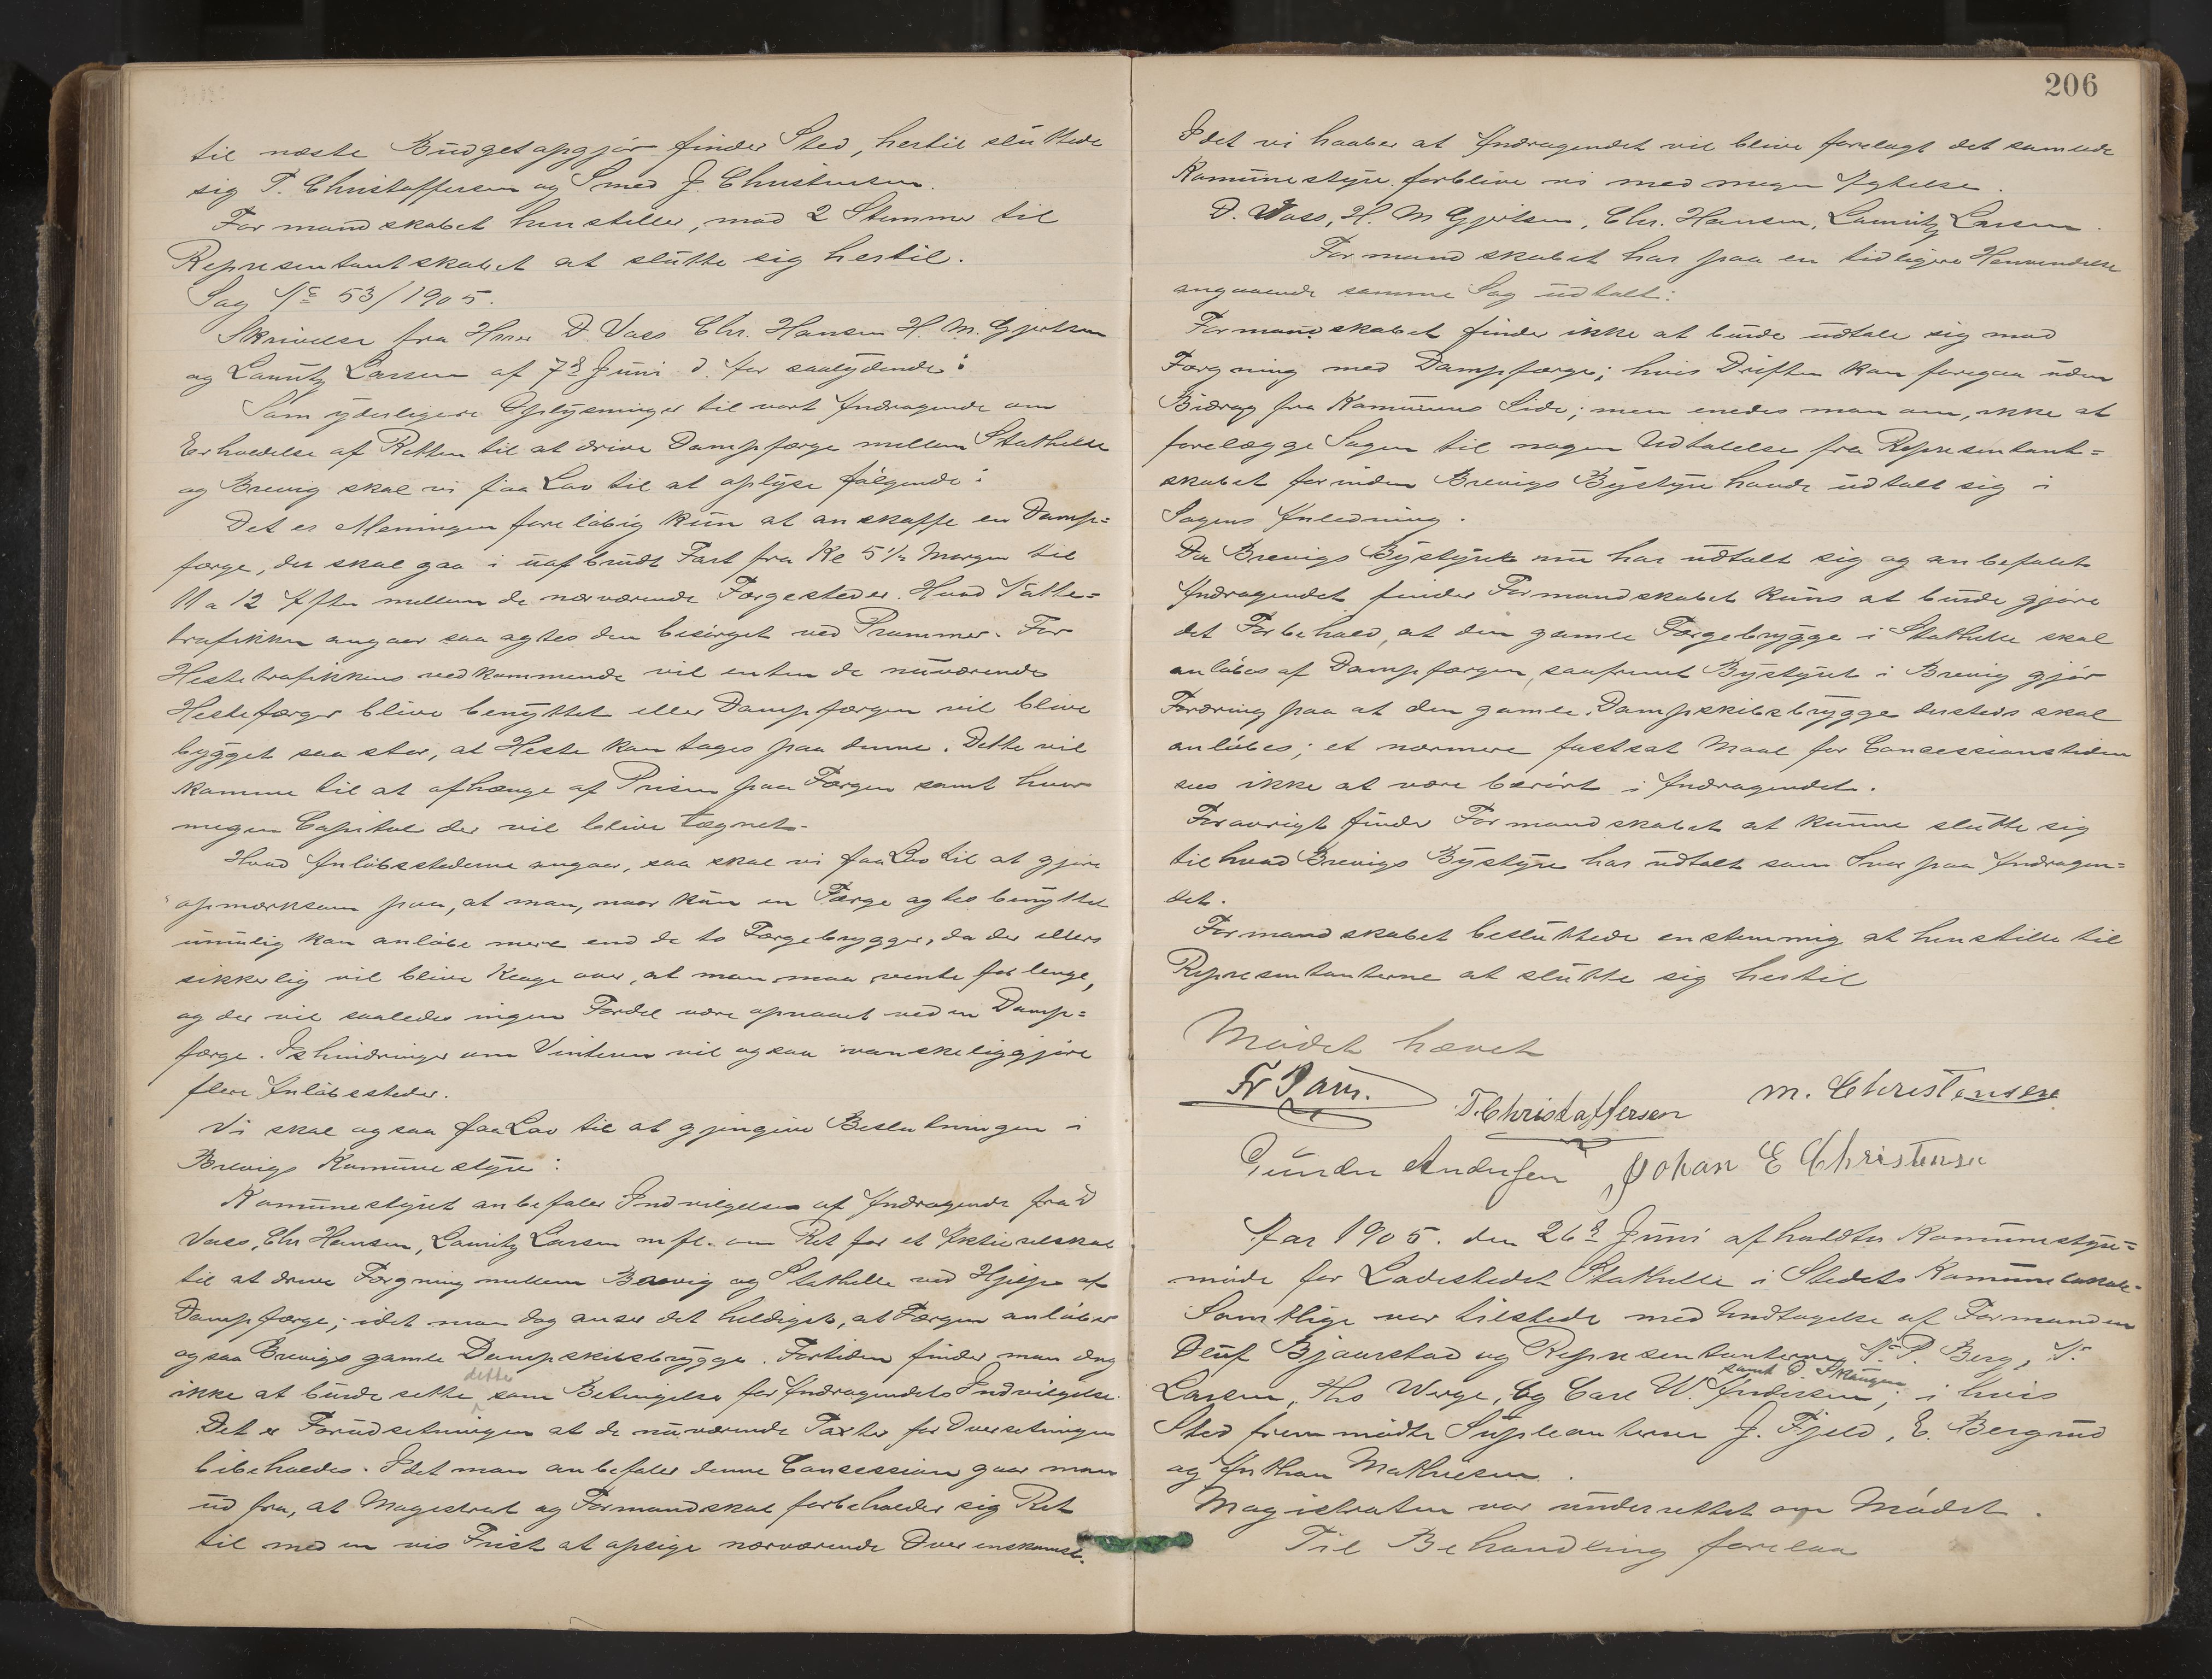 til næste Budgetopgjør finder Sted, hertil sluttede
sig T. Christoffersen og Smed J. Christensen.
Formandskabet henstiller, mod 2 Stemmer til
Representantskabet at slutte sig hertil.
Sag No 53/1905.
Skrivelse fra Herrer D. Vass Chr. Hansen H. M. Gjertsen
og Lauritz Larsen af 7de Juni d. Aar saalydende:
Som yderligere Oplysninger til vort Andragende om
Erholdelse af Retten til at drive Dampfærge mellem Stathelle
og Brevig skal vi faa Lov til at oplyse følgende:
Det er Meningen foreløbig kun at anskaffe en Damp=
færge, der skal gaa i uafbrudt Fart fra Kl 5½ Morgen til
11 a 12 Aften mellem de nærværende Færgesteder. Hvad Natte=
trafikken angaar saa agtes den besørget ved Prammer. For
Hestetrafikkens vedkommende vil enten de nuværende
Hestefærger blive benyttet eller Dampfærgen vil blive
bygget saa stor, at Heste kan tages paa denne. Dette vil
komme til at afhænge af Prisen paa Færgen samt hvor
megen Capital der vil blive tegnet.
Hvad Anløbsstederne angaar, saa skal vi faa Lov til at gjøre
opmærksom paa, at man, naar kun en Færge agtes benyttet
umulig kan anløbe mere end de to Færgebrygger, da der ellers
sikkerlig vil blive Klage over, at man maa vente for lenge,
og der vil saaledes ingen Fordel være opnaaet ved en Damp=
færge. Ishindringer om Vinteren vil ogsaa vanskeliggjøre
flere Anløbssteder.
Vi skal ogsaa faa Lov til at gjengive Beslutningen i
Brevigs Kommunestyre:
Kommunestyret anbefaler Indvilgelse af Andragende fra D
Vass, Chr Hansen, Lauritz Larsen m fl. om Ret for et Aktieselskab
til at drive Færgning mellem Brevig og Stathelle ved Hjelp af
Dampfærge; idet man dog anser det heldigst, at Færgen anløber
ogsaa Brevigs gamle Dampskibsbrygge. Fortiden finder man dog
ikke at burde sette dette som Betingelse for Andragendets Indvilgelse.
Det er Forudsetningen at de nuværende Taxter for Oversetningen
bibeholdes. Idet man anbefaler denne Concession gaar man
ud fra, at Magistrat og Formandskab forbeholder sig Ret
til med en vis Frist at opsige nærværende Overenskomst.
206
Idet vi haaber at Andragendet vil blive forelagt det samlede
Komunestyre forblive vi med megen Agtelse.
D. Vass, H. M Gjertsen, Chr. Hansen, Lauritz Larsen.
Formandskabet har paa en tidligere Henvendelse
angaaende samme Sag udtalt:
Formandskabet finder ikke at burde udtale sig mod
Færgning med Dampfærge; hvis Driften kan foregaa uden
Bidrag fra Komunens Side; men enedes man om, ikke at
forelægge Sagen til nogen Udtalelse fra Representant=
skabet forinden Brevigs Bystyre havde udtalt sig i
Sagens Anledning.
Da Brevigs Bystyre nu har udtalt sig og anbefalet
Andragendet finder Formandskabet kuns at burde gjøre
det Forbehold, at den gamle Færgebrygge i Stathelle skal
anløbes af Dampfærgen, saafremt Bystyret i Brevig gjør
Fordring paa at den gamle Dampskibsbrygge dersteds skal
anløbes; et nærmere fastsat Maal for Concessionstiden
sees ikke at være berørt i Andragendet.
Forøvrigt finder Formandskabet at kunne slutte sig
til hvad Brevigs Bystyre har udtalt som Svar paa Andragen=
det.
Formandskabet besluttede enstemmig at henstille til
Representanterne at slutte sig hertil
Mødet hævet
T. Christoffersen M. Christensen
Gunder Andersen Johan E Christensen
Aar 1905. den 26de Juni afholdtes Komunestyre=
møde for Ladestedet Stathelle i Stedets Komunelokale.
Samtlige var tilstede med Undtagelse af Formanden
Oluf Bjaarstad og Representanterne N. P. Berg, N.
Larsen, Ths Werge, og Carl W. Andersen, samt O. i hvis
Sted fremmødte Supleanterne J. Fjeld, E. Bergrud
og Anthon Mathiesen.
Magistraten var underrettet om Mødet.
Til Behandling forelaa